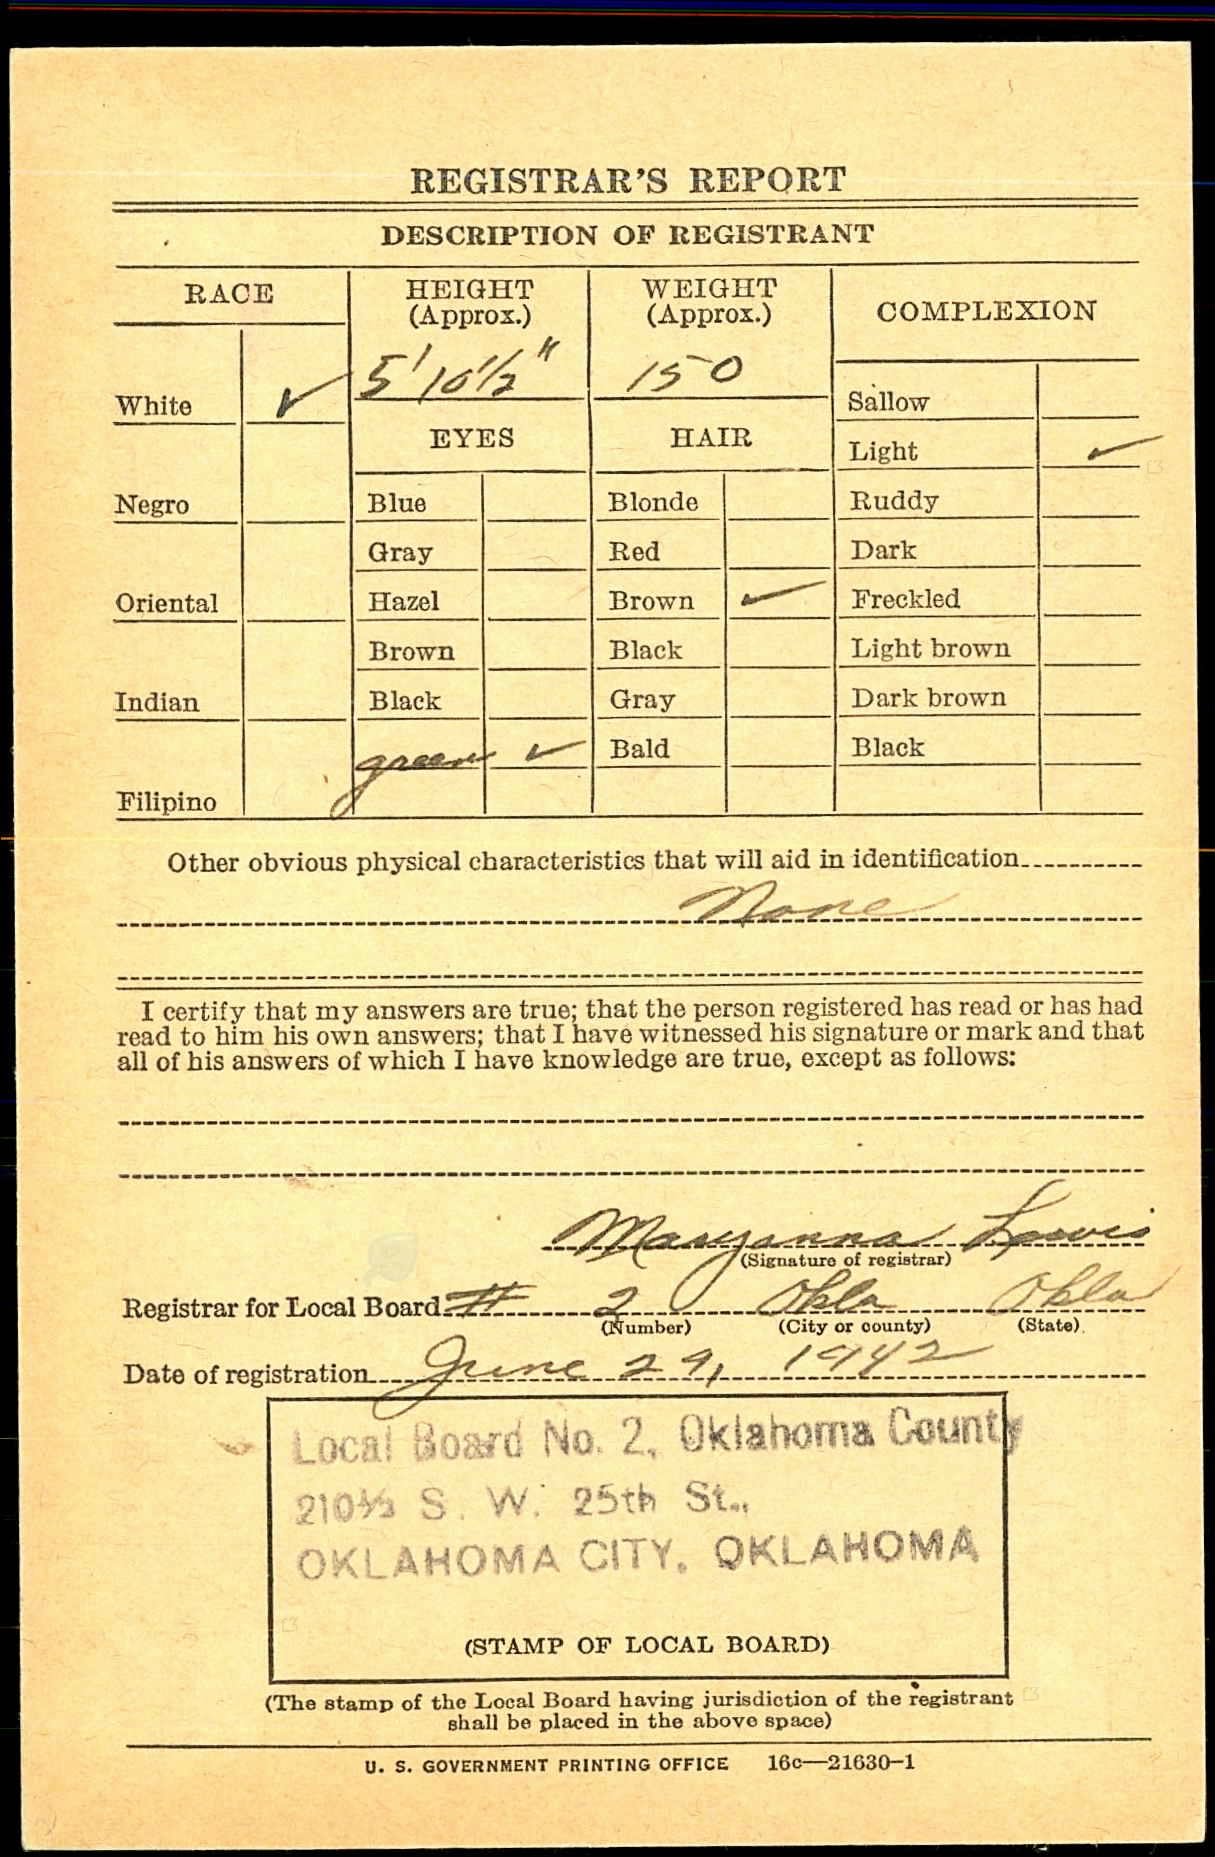 REGISTRAR'S REPORT
DESCRIPTION OF REGISTRANT
RACE
HEIGHT
(Approx.)
WEIGHT
(Approx.)
COMPLEXION
5' 10½"
150
White ✓
Sallow
EYES
HAIR
Light ✓
Negro
Blue
Blonde
Ruddy
Gray
Red
Dark
Oriental
Hazel
Brown ✓
Freckled
Brown
Black
Light brown
Indian
Black
Gray
Dark brown
green ✓
Bald
Black
Filipino
Other obvious physical characteristics that will aid in identification
None
I certify that my answers are true; that the person registered has read or has had
read to him his own answers; that I have witnessed his signature or mark and that
all of his answers of which I have knowledge are true, except as follows:
Maryanna Lewis
(Signature of registrar)
Registrar for Local Board # 2 Okla Okla
(Number) (City or county) (State)
Date of registration June 29, 1942
Local Board No. 2, Oklahoma County
210½ S. W. 25th St.,
OKLAHOMA CITY, OKLAHOMA
(STAMP OF LOCAL BOARD)
(The stamp of the Local Board having jurisdiction of the registrant
shall be placed in the above space)
U. S. GOVERNMENT PRINTING OFFICE 16c—21630-1